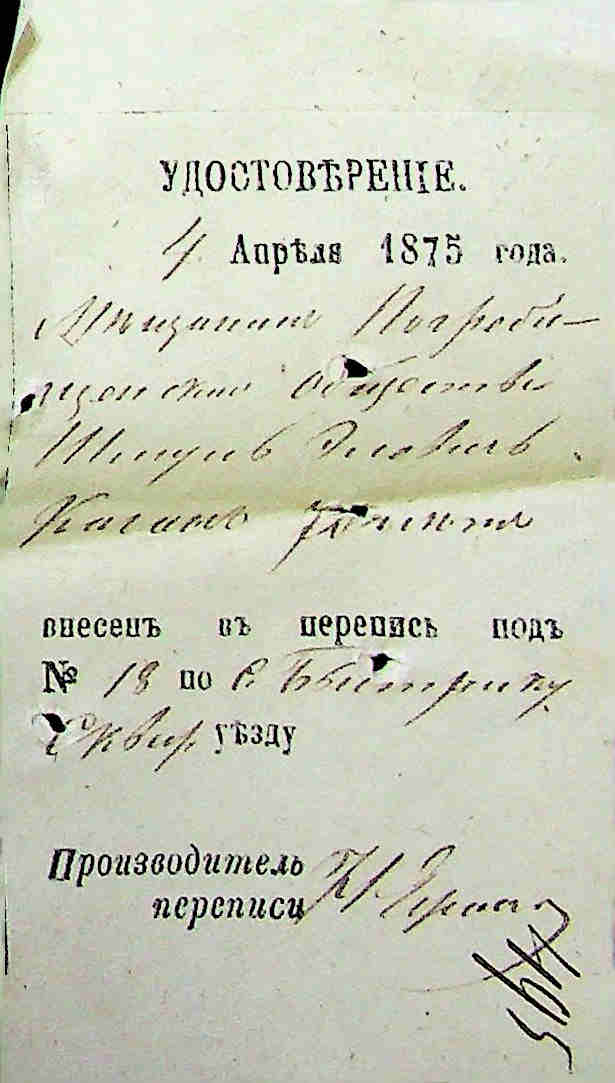 УДОСТОВѢРЕНІЕ.
4 Апрѣля 1875 года.
Мѣщанинъ Погреби-
щенскаго общества
Шмуль
Каганъ
внесенъ въ перепись подъ
№ 18 по с. Быстрику
Сквир уѣзду
Производитель
переписи